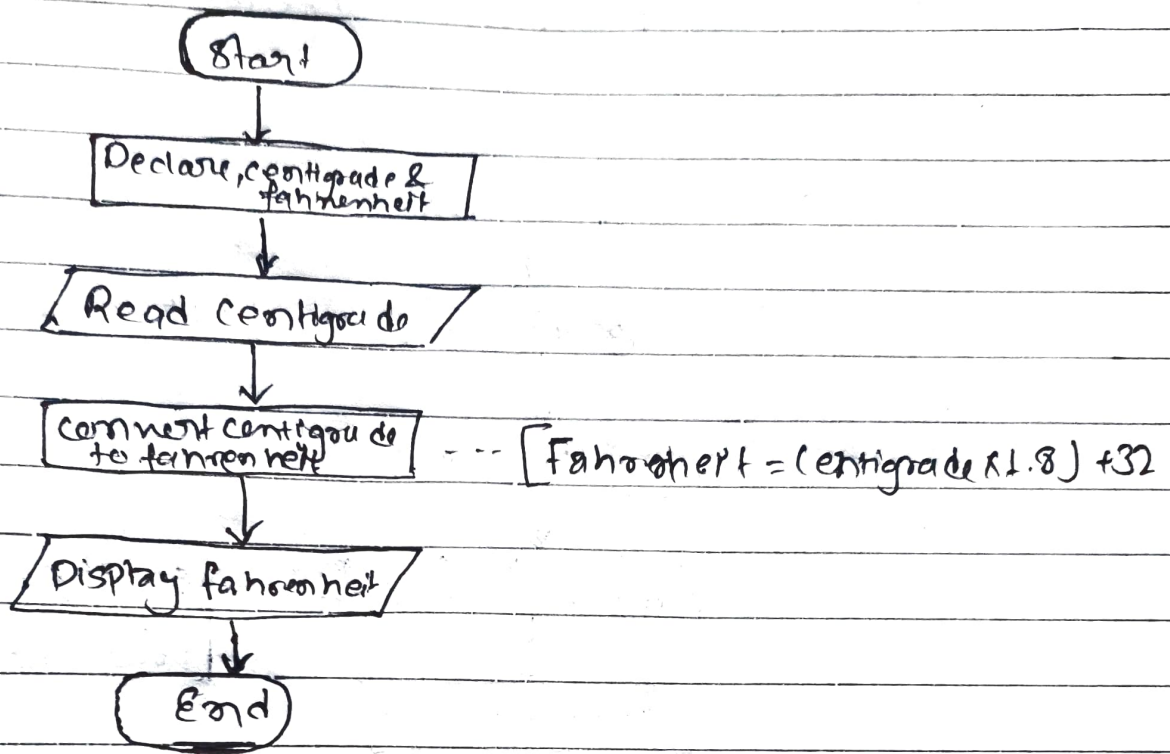 Start
Declare, centigrade &
fahrenheit
Read centigrade
convert centigrade
to fahrenheit
--- [Fahrenheit = (entigrade x 1.8) + 32
Display fahrenheit
End